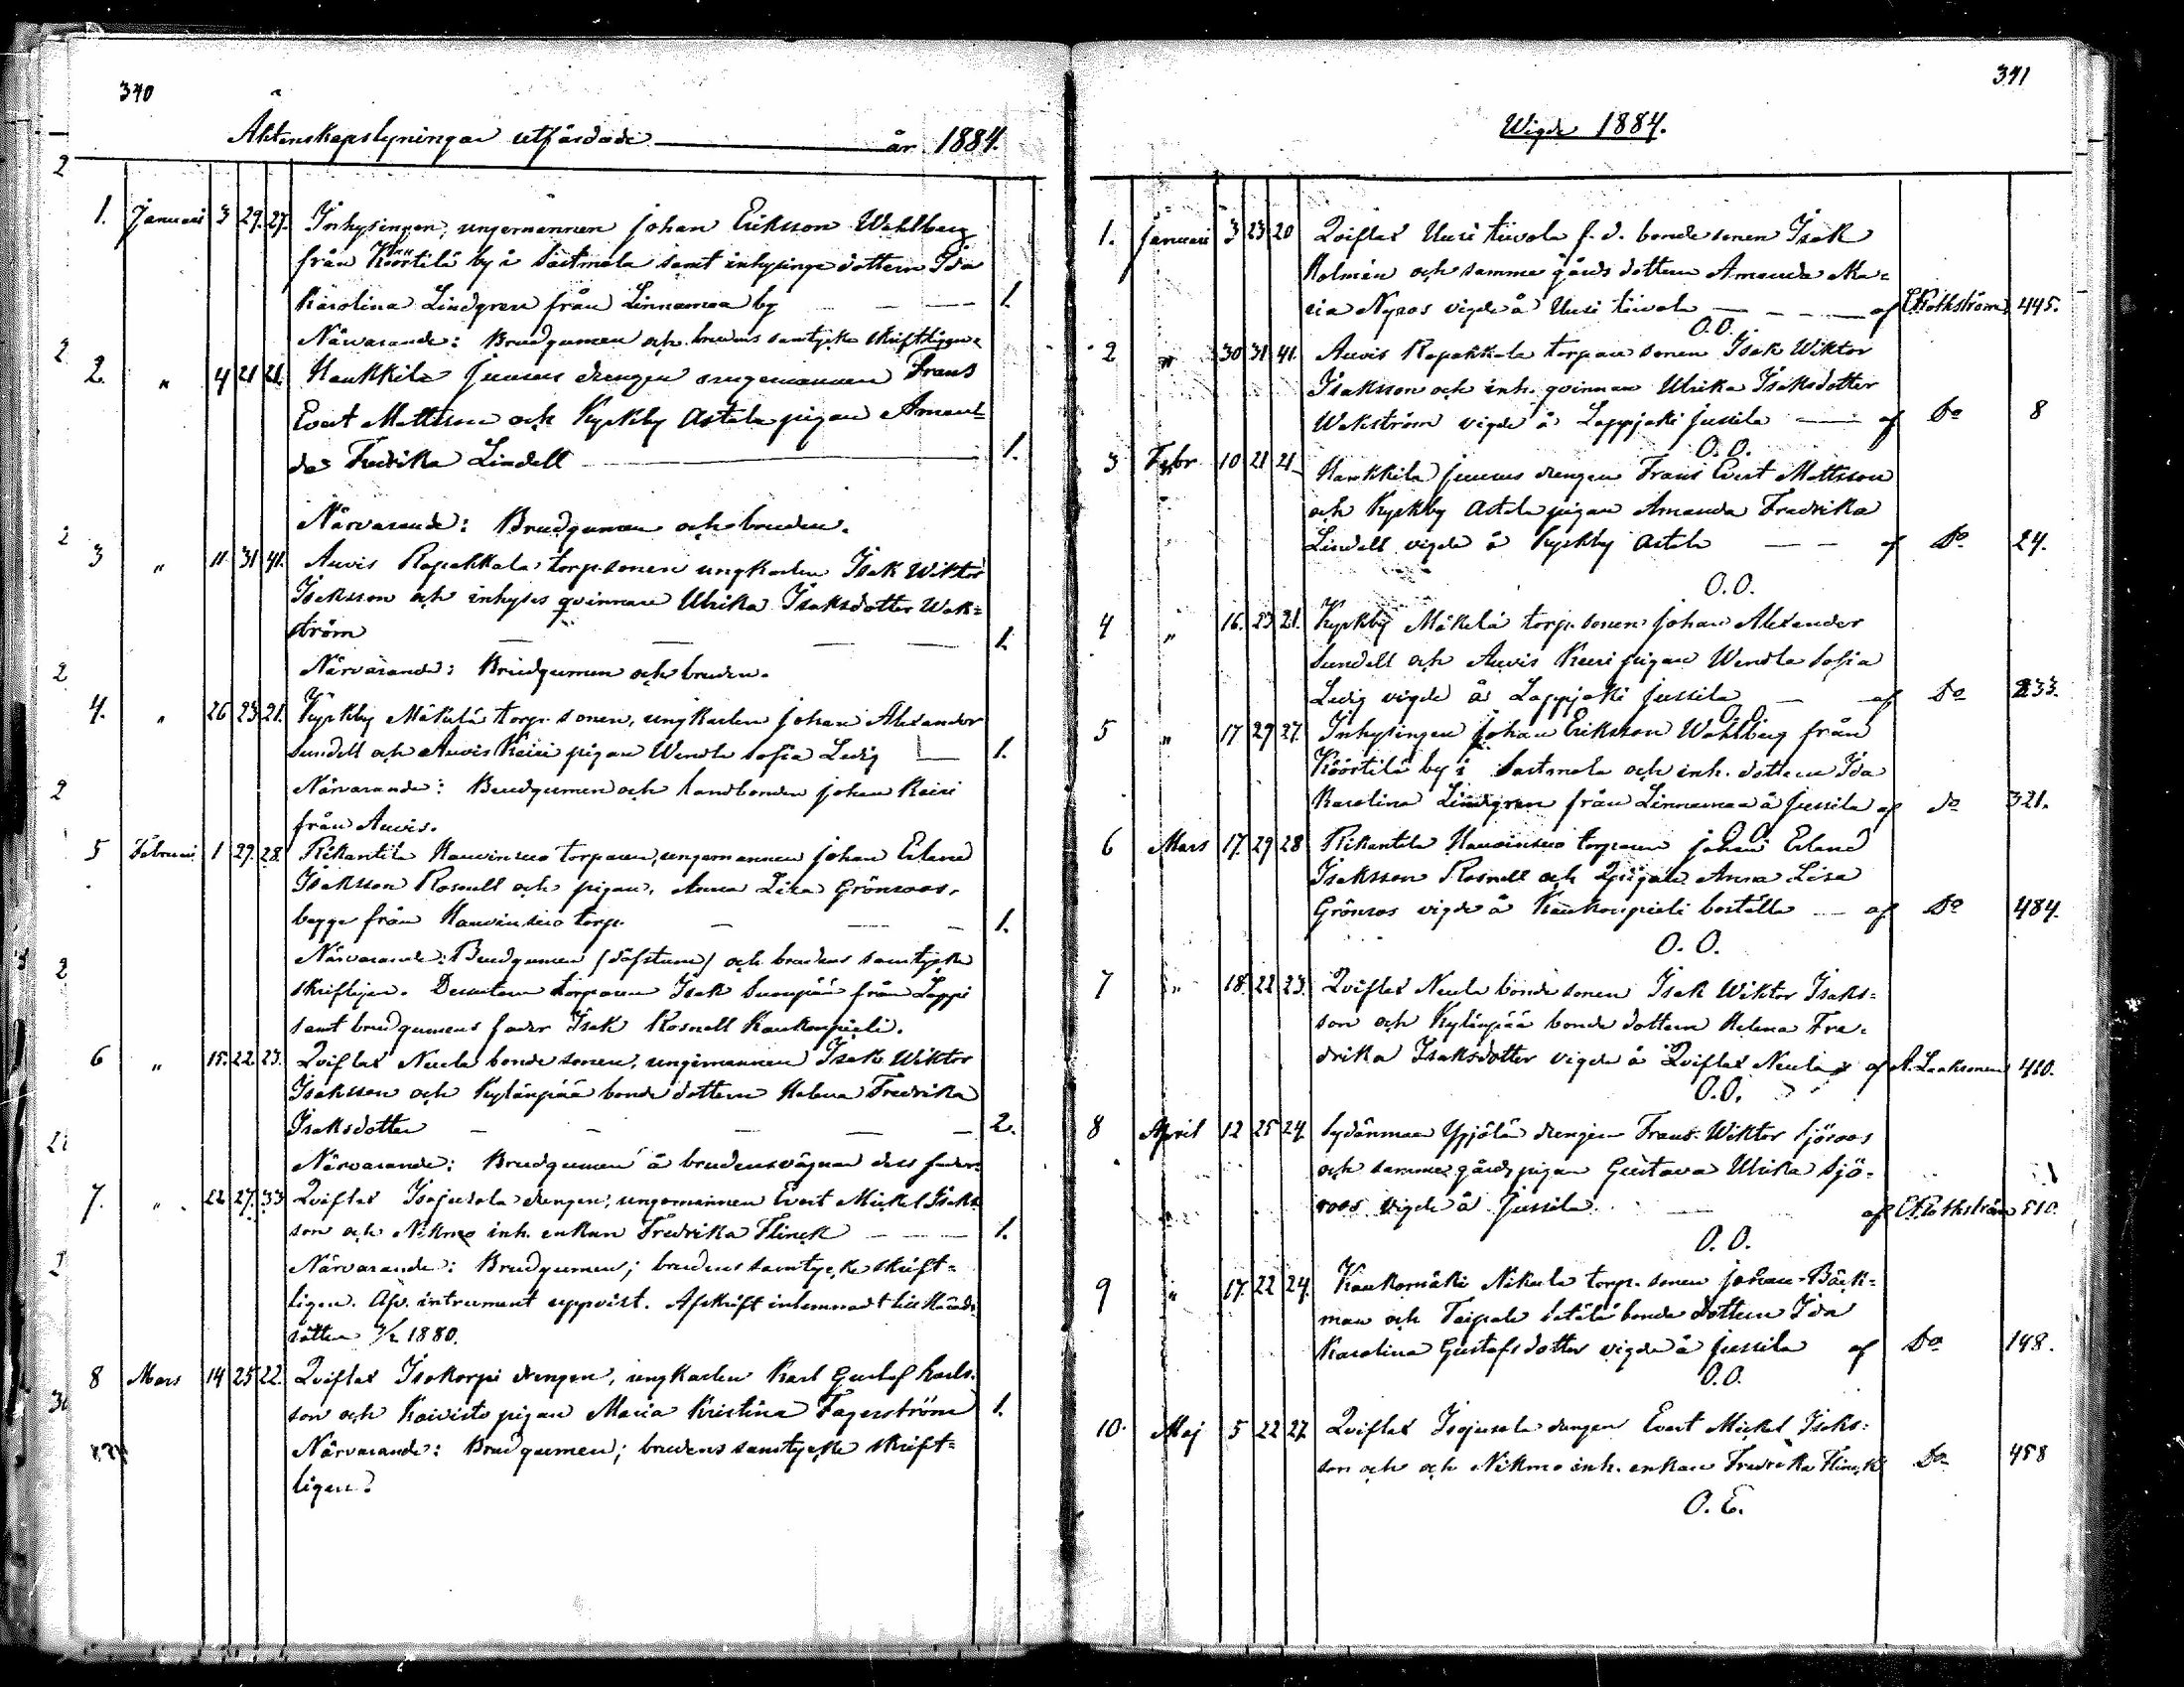 340
Äktenskapslysningar utfärdade år 1884.
1. Januari 3 29. 27. Inhysingen, ungermannen Johan Eriksson Wahlberg
från Köörtilä by i Sastmola samt inhysinge dottern Ida
Karolina Lindgren från Linnamaa by 1.
Närvarande: Brudgumen och brudens samtycke skriftligen.
2. " 4 21 21. Haukkila Juunus drengen ungemannen Frans
Evert Mattsson och Kyrkby Astala pigan Aman-
da Fredrika Lindell 1.
Närvarande: Brudgumen och bruden.
3 " 11. 31 41. Auvis Rapakkala torp. sonen ungkarlen Isak Wiktor
Isaksson och inhyses qvinnan Ulrika Isaksdotter Wak=
ström 1.
Närvarande: Brudgumen och bruden.
4. " 26 23 21. Kyrkby Mäkelä torp. sonen, ungkarlen Johan Alexander
Sundell och Auvis Keiri pigan Wendla Sofia Ledig 1.
Närvarande: Brudgumen och landbonden Johan Keiri
från Auvis.
5 Februari 1 29. 28. Rikantila Hauvinsuo torparen, ungermannen Johan Erland
Isaksson Rosnell och pigan, Anna Lisa Grönroos,
begge från Hauvinsuo torp. 1.
Närvarande: Brudgumen (döfstum) och brudens samtycke
skriftligen. Dessutom torparen Isak Suonpää från Lappi
samt brudgumens fader Isak Rosnell Kaukonpieli.
6 " 15. 22 23. Qviflax Neula bonde sonen, ungermannen Isak Wiktor
Isaksson och Kylänpää bonde dottern Helena Fredrika
Isaksdotter 2.
Närvarande: Brudgumen å brudens vägnar dess fader.
7. " 22 27. 33 Qviflax Isojusola drengen, ungermannen Evert Mickel Isaks-
son och Nikmo inh. enkan Fredrika Flinck 1.
Närvarande: Brudgumen; brudens samtycke skrift=
ligen. Afv. intrument uppvist. Afskrift inlemnadt till Härads
rätten 1880.
8 Mars 14 25 22. Qviflax Isokorpi drengen, ungkarlen Karl Gustaf Karls-
son och Koivisto pigan Maria Kristina Fagerström 1.
Närvarande: Brudgumen; brudens samtycke skrift=
ligen.
341
Wigde 1884.
1. Januari 3 23 20 Qviflax Uusi tiivola f. d. bonde sonen Isak
Holmén och samme gårds dottern Amanda Ma=
ria Nyroos vigde å Uusi tiivola af C. Rothström 445.
O. O.
2 " 30 31 41. Auvis Rapakkala torpare sonen Isak Wiktor
Isaksson och inh. qvinnan Ulrika Isaksdotter
Wakström vigde å Lappjoki Jussila af Do 8
O. O.
3 Febr 10 21 21 Haukkila Juunus drengen Frans Evert Mattsson
och Kyrkby Astala pigan Amanda Fredrika
Lindell vigde å Kyrkby Astala af Do 24.
O. O.
4 " 16. 23 21. Kyrkby Mäkelä torp. sonen Johan Alexander
Sundell och Auvis Keiri pigan Wendla Sofia
Ledig vigde å Lappjoki Jussila af Do 233.
O. O.
5 " 17 29 27. Inhysingen Johan Eriksson Wahlberg från
Köörtilä by i Sastmola och inh. dottern Ida
Karolina Lindgren från Linnamaa å Jussila af do 321.
O. O.
6 Mars 17. 29 28 Rikantila Hauvinsuo torparen Johan Erland
Isaksson Rosnell och pigan Anna Lisa
Grönroos vigde å Kaukonpieli boställe af Do 484.
O. O.
7 " 18. 22 23. Qviflax Neula bonde sonen Isak Wiktor Isaks=
son och Kylänpää bonde dottern Helena Fre-
drika Isaksdotter vigde å Qviflax Neula af A. Laaksonen 410.
O. O.
8 April 12 25 24. Sydänmaa Ypjölä drengen Frans Wiktor Sjöroos
och samme gårds pigan Gustava Ulrika Sjö-
roos vigde å Jussila af C. Rothström 510.
O. O.
9 " 17. 22 24. Kaukomäki Nikula torp. sonen Johan Bäck=
man och Taipale Satälä bonde dottern Ida
Karolina Gustafsdotter vigde å Jussila af Do 148.
O. O.
10. Maj 5 22 27 Qviflax Isojusola drengen Evert Mickel Isaks=
son och och Nikmo inh. enkan Fredrika Flinck Do 458
O. E.